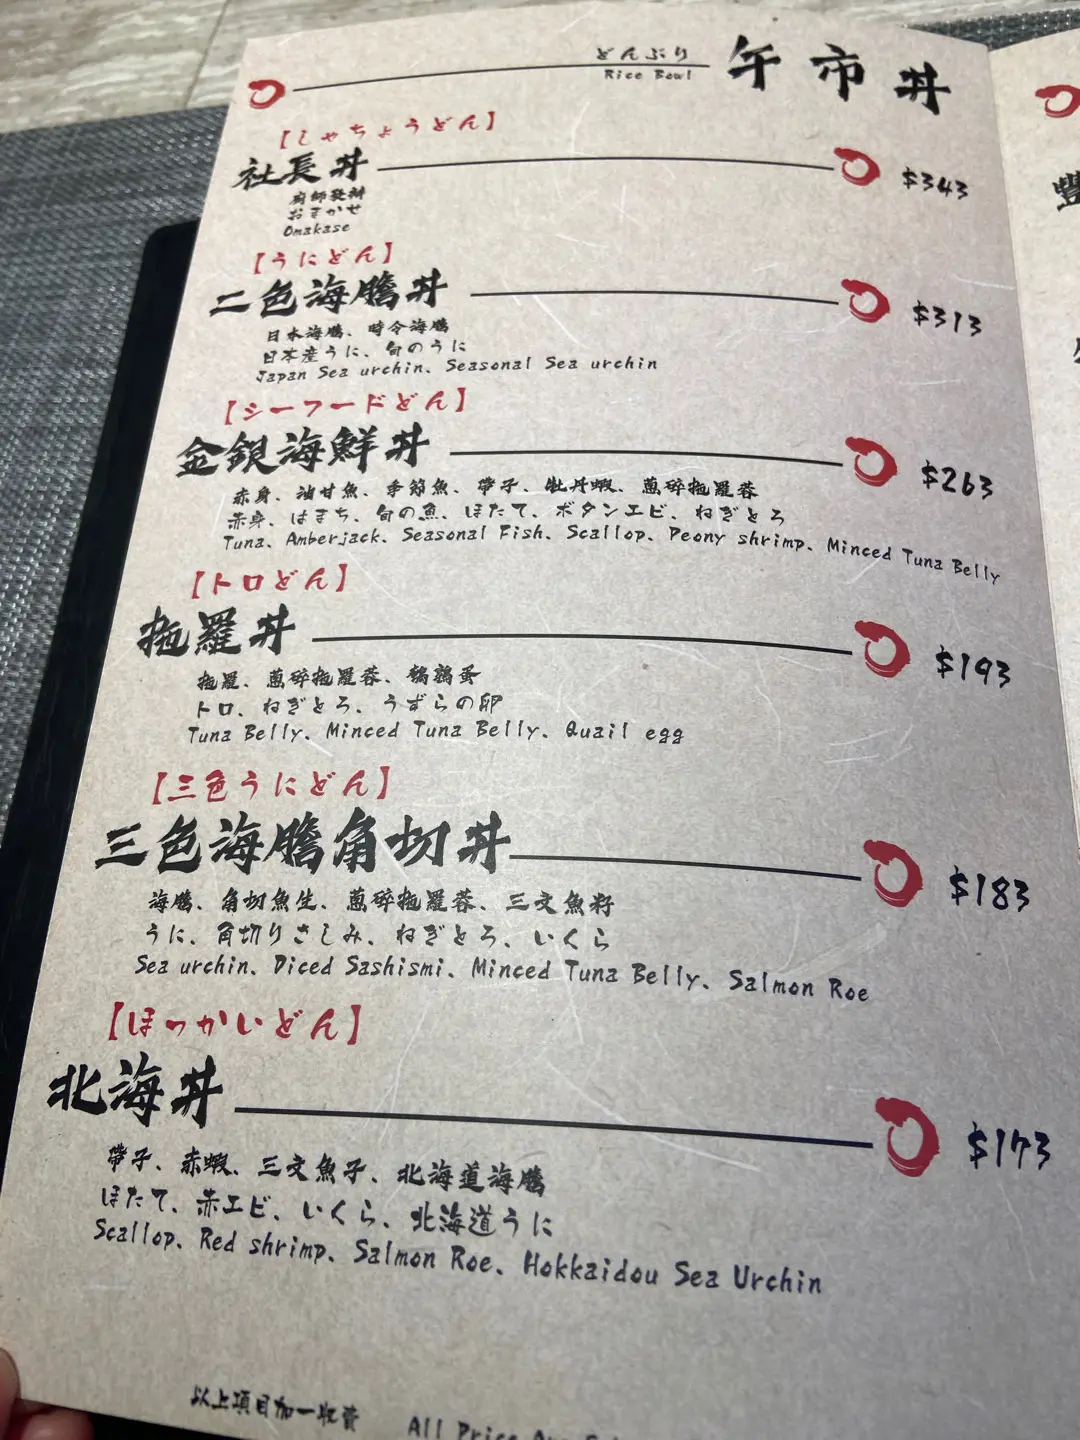 どんぶり
Rice Bowl
午市丼
【しゃちょうどん】
社長丼 $343
廚師發辦
おまかせ
Omakase
【うにどん】
二色海膽丼 $313
日本海膽、時令海膽
日本産うに、旬のうに
Japan Sea urchin、Seasonal Sea urchin
【シーフードどん】
金銀海鮮丼 $263
赤身、油甘魚、季節魚、帶子、牡丹蝦、蔥碎拖羅蓉
赤身、はまち、旬の魚、ほたて、ボタンエビ、ねぎとろ
Tuna、Amberjack、Seasonal Fish、Scallop、Peony shrimp、Minced Tuna Belly
【トロどん】
拖羅丼 $193
拖羅、蔥碎拖羅蓉、鵪鶉蛋
トロ、ねぎとろ、うずらの卵
Tuna Belly、Minced Tuna Belly、Quail egg
【三色うにどん】
三色海膽角切丼 $183
海膽、角切魚生、蔥碎拖羅蓉、三文魚籽
うに、角切りさしみ、ねぎとろ、いくら
Sea urchin、Diced Sashismi、Minced Tuna Belly、Salmon Roe
【ほっかいどん】
北海丼 $173
帶子、赤蝦、三文魚子、北海道海膽
ほたて、赤エビ、いくら、北海道うに
Scallop、Red shrimp、Salmon Roe、Hokkaidou Sea Urchin
以上項目加一收費 All Price